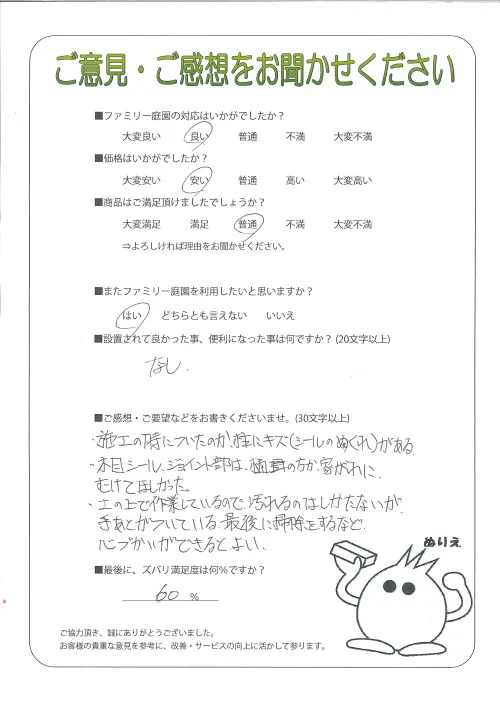 ご意見・ご感想をお聞かせください
■ファミリー庭園の対応はいかがでしたか？
大変良い 良い 普通 不満 大変不満
■価格はいかがでしたか？
大変安い 安い 普通 高い 大変高い
■商品はご満足頂けましたでしょうか？
大変満足 満足 普通 不満 大変不満
⇒よろしければ理由をお聞かせください。
■またファミリー庭園を利用したいと思いますか？
はい どちらとも言えない いいえ
■設置されて良かった事、便利になった事は何ですか？(20文字以上)
なし.
■ご感想・ご要望などをお書きくださいませ。(30文字以上)
・施工の時についたのか、柱にキズ(シールのめくれ)がある
・木目シール、ジョイント部は、植- の方か、家がわに、
むけてほしかった。
・土の上で作業しているので、汚れるのはしかたないが、
手あとがついている。最後に掃除をするなど、
心づかいができるとよい、
ぬりえ
■最後に、ズバリ満足度は何％ですか？
60 %
ご協力頂き、誠にありがとうございました。
お客様の貴重な意見を参考に、改善・サービスの向上に活かして参ります。